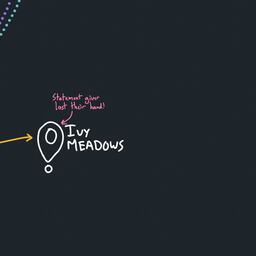 Statement giver
lost their hand!
Ivy
MEADOWS